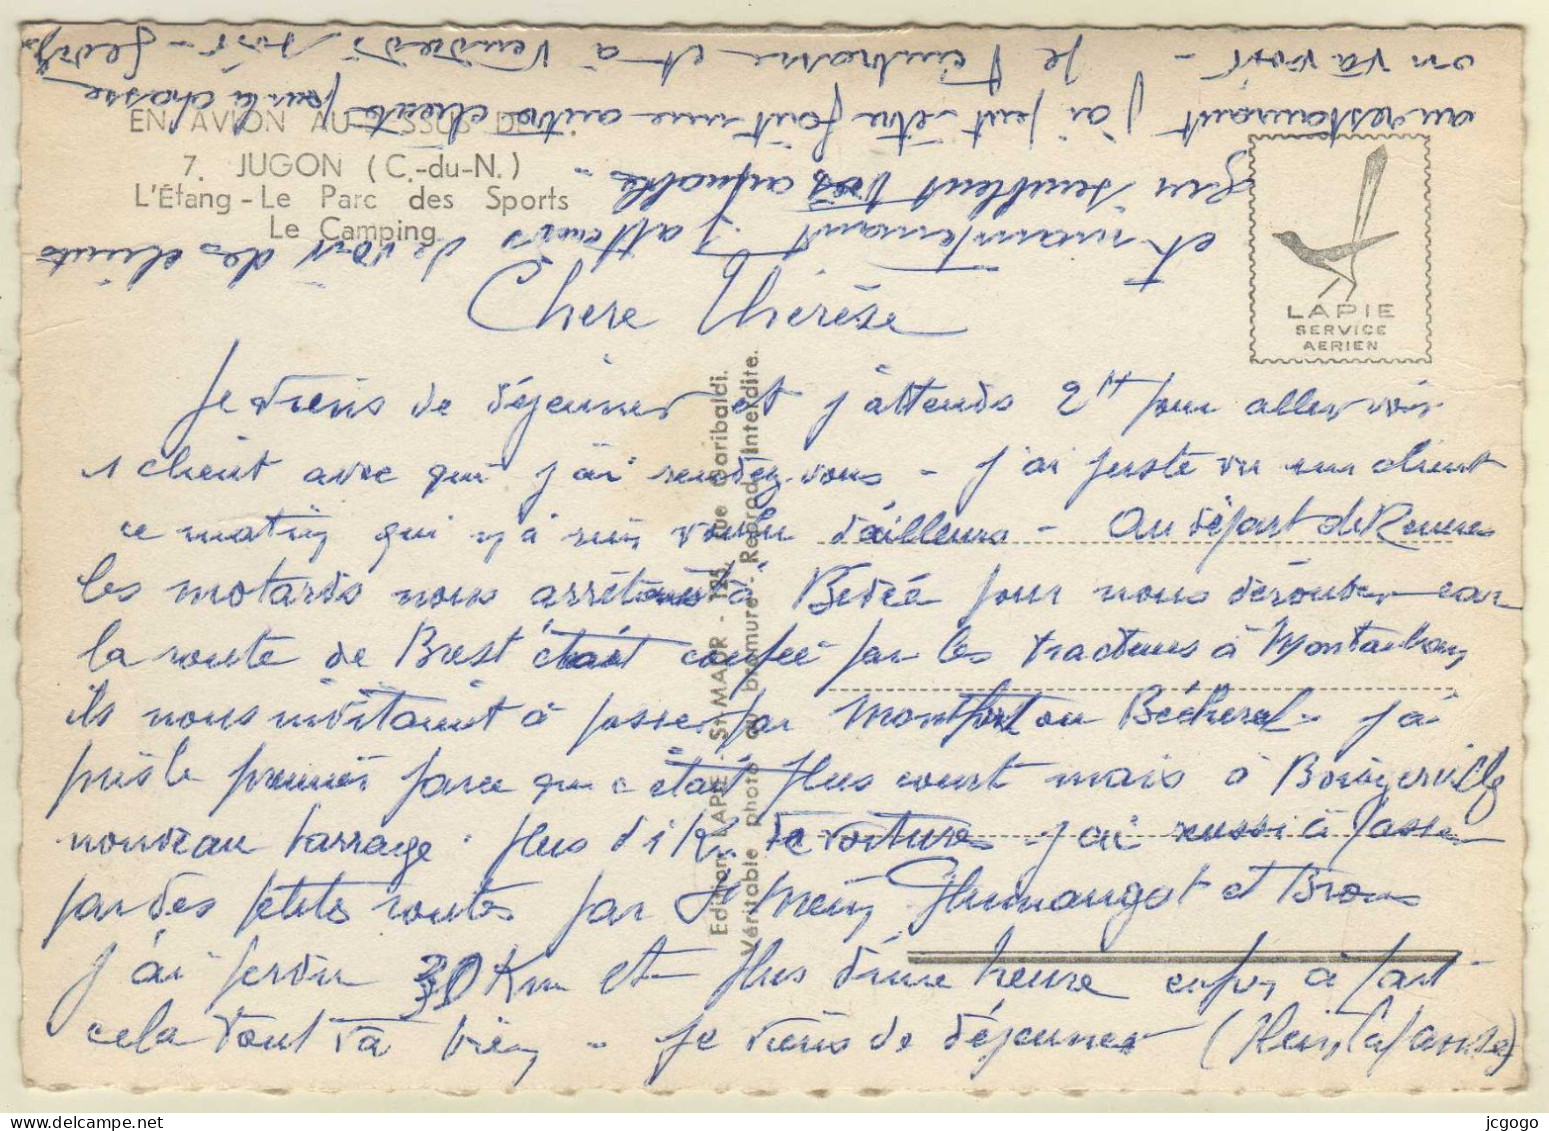 EN AVION AU-DESSUS DE...
7. JUGON (C.-du-N.)
L'Étang - Le Parc des Sports
Le Camping
LAPIE
SERVICE
AERIEN
Chère Thérèse
Je viens de déjeuner et j'attends 2H pour aller voir
1 client avec qui j'ai rendez-vous - j'ai juste vu un client
ce matin qui n'a rien voulu d'ailleurs - Au départ de Rennes
les motards nous arrêtaient à Bédée pour nous dérouter car
la route de Brest était coupée par les tracteurs à Montauban
ils nous invitaient à passer par Montfort ou Bécherel - j'ai
pris le premier parce que c'était plus court mais à Boisgerville
nouveau barrage. plus d'1 Km de voitures j'ai réussi à passer
par des petites routes par St Méen Plumaugat et Broons
j'ai perdu 30 Km et plus d'une heure enfin à part
cela tout va bien - Je viens de déjeuner (Plein la panse)
et maintenant j'attends de voir des clients
qui semblent très aimables -
au restaurant j'ai peut-être fait une autre cliente pour la chasse
on va voir - Je t'embrasse et à Vendredi soir -
Edition LAPIE - St-MAUR - 125, rue Garibaldi.
Véritable photo au bromure - Reprod. Interdite.
jcgogo